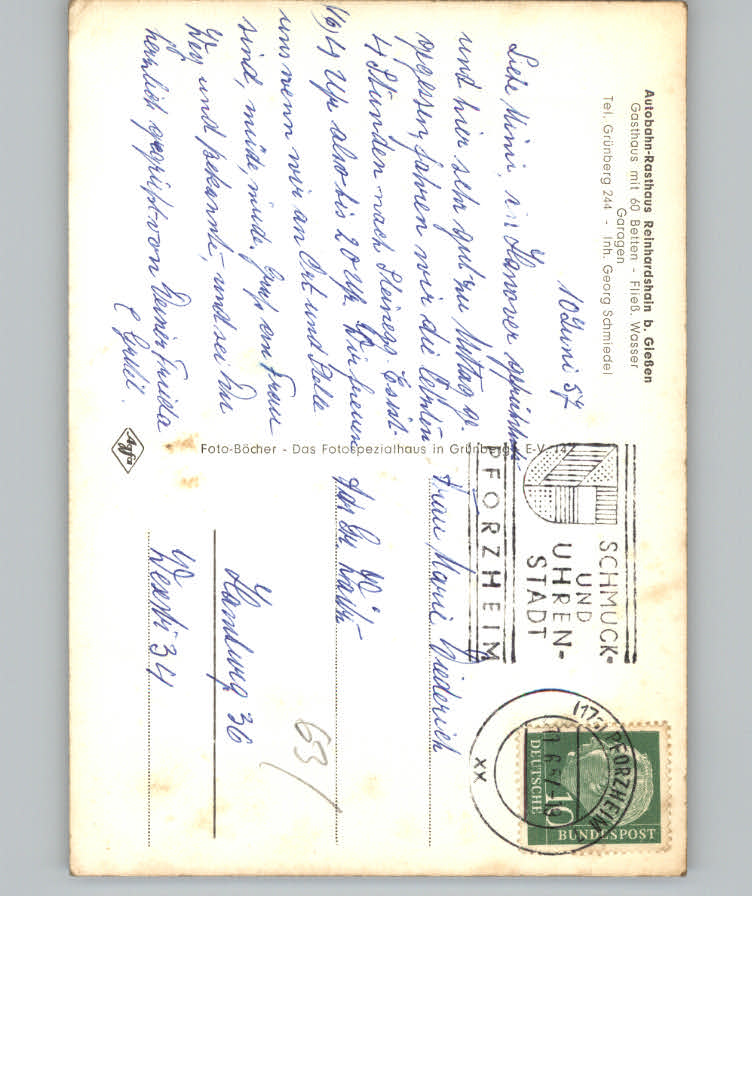 Autobahn-Rasthaus Reinhardshain b. Gießen
Gasthaus mit 60 Betten - Fließ. Wasser
Garagen
Tel. Grünberg 244 - Inh. Georg Schmiedel
10 Juni 57
Liebe Mimi, in Hanover gefrühst.
und hier sehr gut zu Mittag ge-
gessen, fahren wir die letzten
4 Stunden nach Steinegg
1/4 4 Uhr also bis 20 Uhr. Wir freuen
uns wenn wir an Ort und Stelle
sind, müde, müde. Gruß an Frau
Weg und Bekannte, und sei Du
herzlich gegrüßt von Deiner Frieda
Foto-Böcher - Das Fotospezialhaus in Grünberg E-V 142
Agfa
SCHMUCK-
UND
UHREN-
STADT
PFORZHEIM
(17a) PFORZHEIM
xx
DEUTSCHE
BUNDESPOST
10
Frau Marie Diederich
Hamburg 36
63/